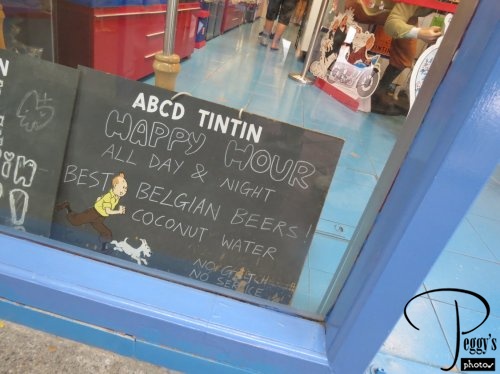 ABCD TINTIN
HAPPY HOUR
ALL DAY & NIGHT
BEST BELGIAN BEERS!
COCONUT WATER
NO
NO
in
!
Peggy's
photos